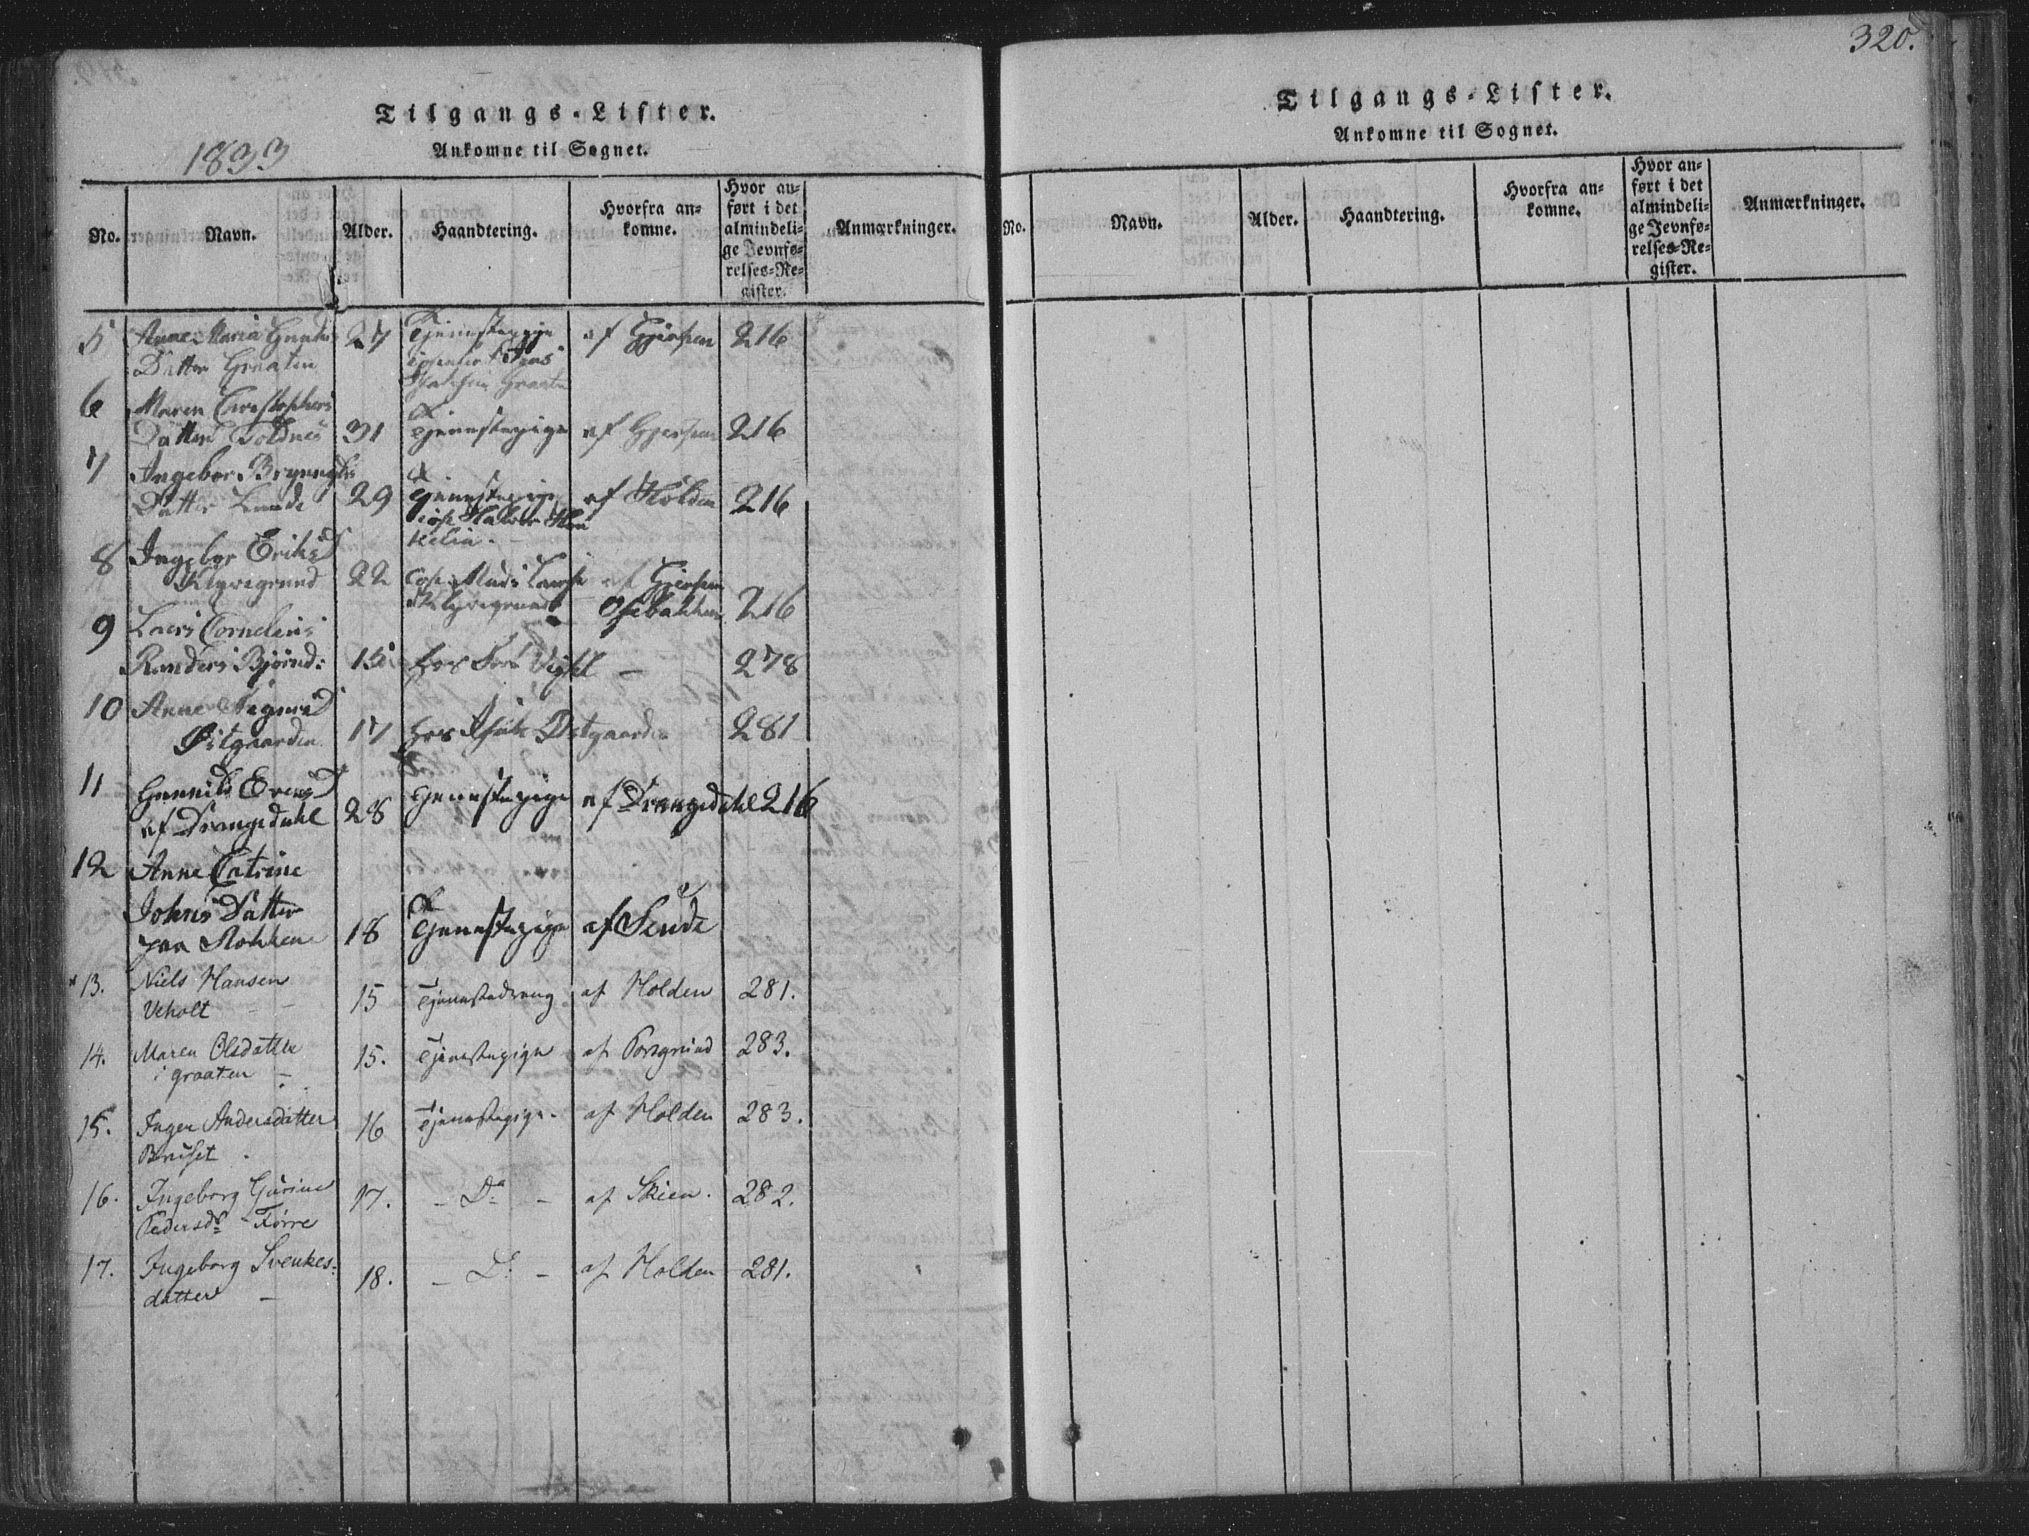 320.
Tilgangs-Lister.
Ankomne til Sognet.
1833
No.
Navn.
Alder.
Haandtering.
Hvorfra an-
komne.
Hvor an-
ført i det
almindeli-
ge Jevnfø-
relses-Re-
gister.
Anmærkninger.
5 Anne Maria
Datter Graaten 27 Tjenestepige af Gjerpen 216
6 Maren Christophers
Datter 31 Tjenestepige af Gjerpen 216
7 Ingebor
Datter Lunde 29 Tjenestepige af Holden 216
8 Ingebor Eriks D
Klyvegrund 22 af Gjerpen
Klyvegrund Osebakken 216
9 Lars Cornelius
15 hos 278
10 Anne D
Østgaarden 17 hos Østgaarden 281
11 Gunnild Evens D
af Drangedahl 28 Tjenestepige af Drangedahl 216
12 Anne Catrine
Johns Datter
paa 18 Tjenestepige af
13. Niels Hansen
Veholt 15 Tjenestedreng af Holden 281.
14. Maren Olsdatter
i graaten 15. Tjenestepige af Porsgrund 283.
15. Inger Andersdatter 16 Tjenestepige af Holden 283.
16. Ingeborg Gurine
Pedersdr Førre 17. - Do - af Skien. 282.
17. Ingeborg Svenkes-
datter 18. - Do - af Holden 281.
Tilgangs-Lister.
Ankomne til Sognet.
No.
Navn.
Alder.
Haandtering.
Hvorfra an-
komne.
Hvor an-
ført i det
almindeli-
ge Jevnfø-
relses-Re-
gister.
Anmærkninger.